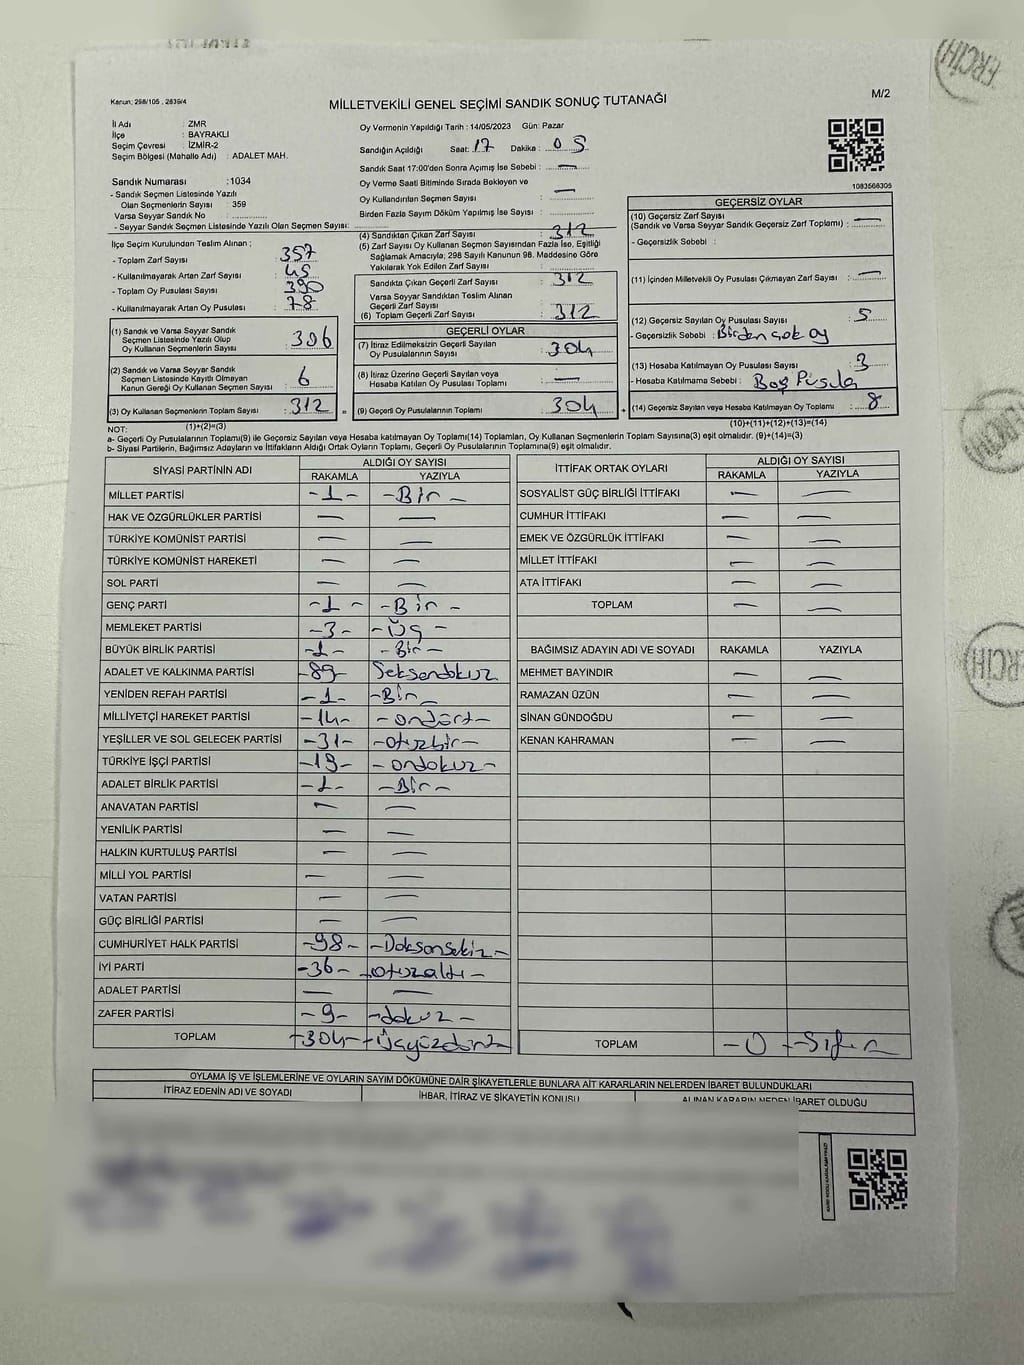 Kanun: 298/105 , 2839/4
MİLLETVEKİLİ GENEL SEÇİMİ SANDIK SONUÇ TUTANAĞI
M/2
İl Adı : ZMR
İlçe : BAYRAKLI
Seçim Çevresi : İZMİR-2
Seçim Bölgesi (Mahalle Adı) : ADALET MAH.
Sandık Numarası : 1034
- Sandık Seçmen Listesinde Yazılı
Olan Seçmenlerin Sayısı : 359
Varsa Seyyar Sandık No :
- Seyyar Sandık Seçmen Listesinde Yazılı Olan Seçmen Sayısı:
İlçe Seçim Kurulundan Teslim Alınan ;
- Toplam Zarf Sayısı : 357
- Kullanılmayarak Artan Zarf Sayısı : 45
- Toplam Oy Pusulası Sayısı : 390
- Kullanılmayarak Artan Oy Pusulası : 78
(1) Sandık ve Varsa Seyyar Sandık
Seçmen Listesinde Yazılı Olup
Oy Kullanan Seçmenlerin Sayısı : 306
(2) Sandık ve Varsa Seyyar Sandık
Seçmen Listesinde Kayıtlı Olmayan
Kanun Gereği Oy Kullanan Seçmen Sayısı : 6
(3) Oy Kullanan Seçmenlerin Toplam Sayısı : 312 =
(1)+(2)=(3)
Oy Vermenin Yapıldığı Tarih : 14/05/2023 Gün: Pazar
Sandığın Açıldığı Saat: 17 Dakika : 05
Sandık Saat 17:00'den Sonra Açımış İse Sebebi : —
Oy Verme Saati Bitiminde Sırada Bekleyen ve
Oy Kullandırılan Seçmen Sayısı : —
Birden Fazla Sayım Döküm Yapılmış İse Sayısı :
(4) Sandıktan Çıkan Zarf Sayısı : 312
(5) Zarf Sayısı Oy Kullanan Seçmen Sayısından Fazla İse, Eşitliği
Sağlamak Amacıyla; 298 Sayılı Kanunun 98. Maddesine Göre
Yakılarak Yok Edilen Zarf Sayısı :
Sandıkta Çıkan Geçerli Zarf Sayısı : 312
Varsa Seyyar Sandıktan Teslim Alınan
Geçerli Zarf Sayısı
(6) Toplam Geçerli Zarf Sayısı : 312
GEÇERLİ OYLAR
(7) İtiraz Edilmeksizin Geçerli Sayılan
Oy Pusulalarının Sayısı : 304
(8) İtiraz Üzerine Geçerli Sayılan veya
Hesaba Katılan Oy Pusulası Toplamı : —
(9) Geçerli Oy Pusulalarının Toplamı : 304 +
1083568305
GEÇERSİZ OYLAR
(10) Geçersiz Zarf Sayısı
(Sandık ve Varsa Seyyar Sandık Geçersiz Zarf Toplamı) : —
- Geçersizlik Sebebi :
(11) İçinden Milletvekili Oy Pusulası Çıkmayan Zarf Sayısı : —
(12) Geçersiz Sayılan Oy Pusulası Sayısı : 5
- Geçersizlik Sebebi : Birden çok oy
(13) Hesaba Katılmayan Oy Pusulası Sayısı : 3
- Hesaba Katılmama Sebebi : Boş Pusula
(14) Geçersiz Sayılan veya Hesaba Katılmayan Oy Toplamı : 8
(10)+(11)+(12)+(13)=(14)
NOT:
a- Geçerli Oy Pusulalarının Toplamı(9) ile Geçersiz Sayılan veya Hesaba katılmayan Oy Toplamı(14) Toplamları, Oy Kullanan Seçmenlerin Toplam Sayısına(3) eşit olmalıdır. (9)+(14)=(3)
b- Siyasi Partilerin, Bağımsız Adayların ve İttifakların Aldığı Ortak Oyların Toplamı, Geçerli Oy Pusulalarının Toplamına(9) eşit olmalıdır.
SİYASİ PARTİNİN ADI ALDIĞI OY SAYISI
RAKAMLA YAZIYLA
MİLLET PARTİSİ -1- -Bir-
HAK VE ÖZGÜRLÜKLER PARTİSİ — —
TÜRKİYE KOMÜNİST PARTİSİ — —
TÜRKİYE KOMÜNİST HAREKETİ — —
SOL PARTİ — —
GENÇ PARTİ -1- -Bir-
MEMLEKET PARTİSİ -3- -Üç-
BÜYÜK BİRLİK PARTİSİ -1- -Bir-
ADALET VE KALKINMA PARTİSİ -89- Seksendokuz
YENİDEN REFAH PARTİSİ -1- -Bir-
MİLLİYETÇİ HAREKET PARTİSİ -14- -ondört-
YEŞİLLER VE SOL GELECEK PARTİSİ -31- -otuzbir-
TÜRKİYE İŞÇİ PARTİSİ -19- -ondokuz-
ADALET BİRLİK PARTİSİ -1- -Bir-
ANAVATAN PARTİSİ — —
YENİLİK PARTİSİ — —
HALKIN KURTULUŞ PARTİSİ — —
MİLLİ YOL PARTİSİ — —
VATAN PARTİSİ — —
GÜÇ BİRLİĞİ PARTİSİ — —
CUMHURİYET HALK PARTİSİ -98- -Doksansekiz-
İYİ PARTİ -36- -otuzaltı-
ADALET PARTİSİ — —
ZAFER PARTİSİ -9- -dokuz-
TOPLAM -304- -Üçyüzdört-
İTTİFAK ORTAK OYLARI ALDIĞI OY SAYISI
RAKAMLA YAZIYLA
SOSYALİST GÜÇ BİRLİĞİ İTTİFAKI — —
CUMHUR İTTİFAKI — —
EMEK VE ÖZGÜRLÜK İTTİFAKI — —
MİLLET İTTİFAKI — —
ATA İTTİFAKI — —
TOPLAM — —
BAĞIMSIZ ADAYIN ADI VE SOYADI RAKAMLA YAZIYLA
MEHMET BAYINDIR — —
RAMAZAN ÜZÜN — —
SİNAN GÜNDOĞDU — —
KENAN KAHRAMAN — —
TOPLAM -0- -Sıfır-
OYLAMA İŞ VE İŞLEMLERİNE VE OYLARIN SAYIM DÖKÜMÜNE DAİR ŞİKAYETLERLE BUNLARA AİT KARARLARIN NELERDEN İBARET BULUNDUKLARI
İTİRAZ EDENİN ADI VE SOYADI İHBAR, İTİRAZ VE ŞİKAYETİN KONUSU ALINAN KARARIN NEDEN İBARET OLDUĞU